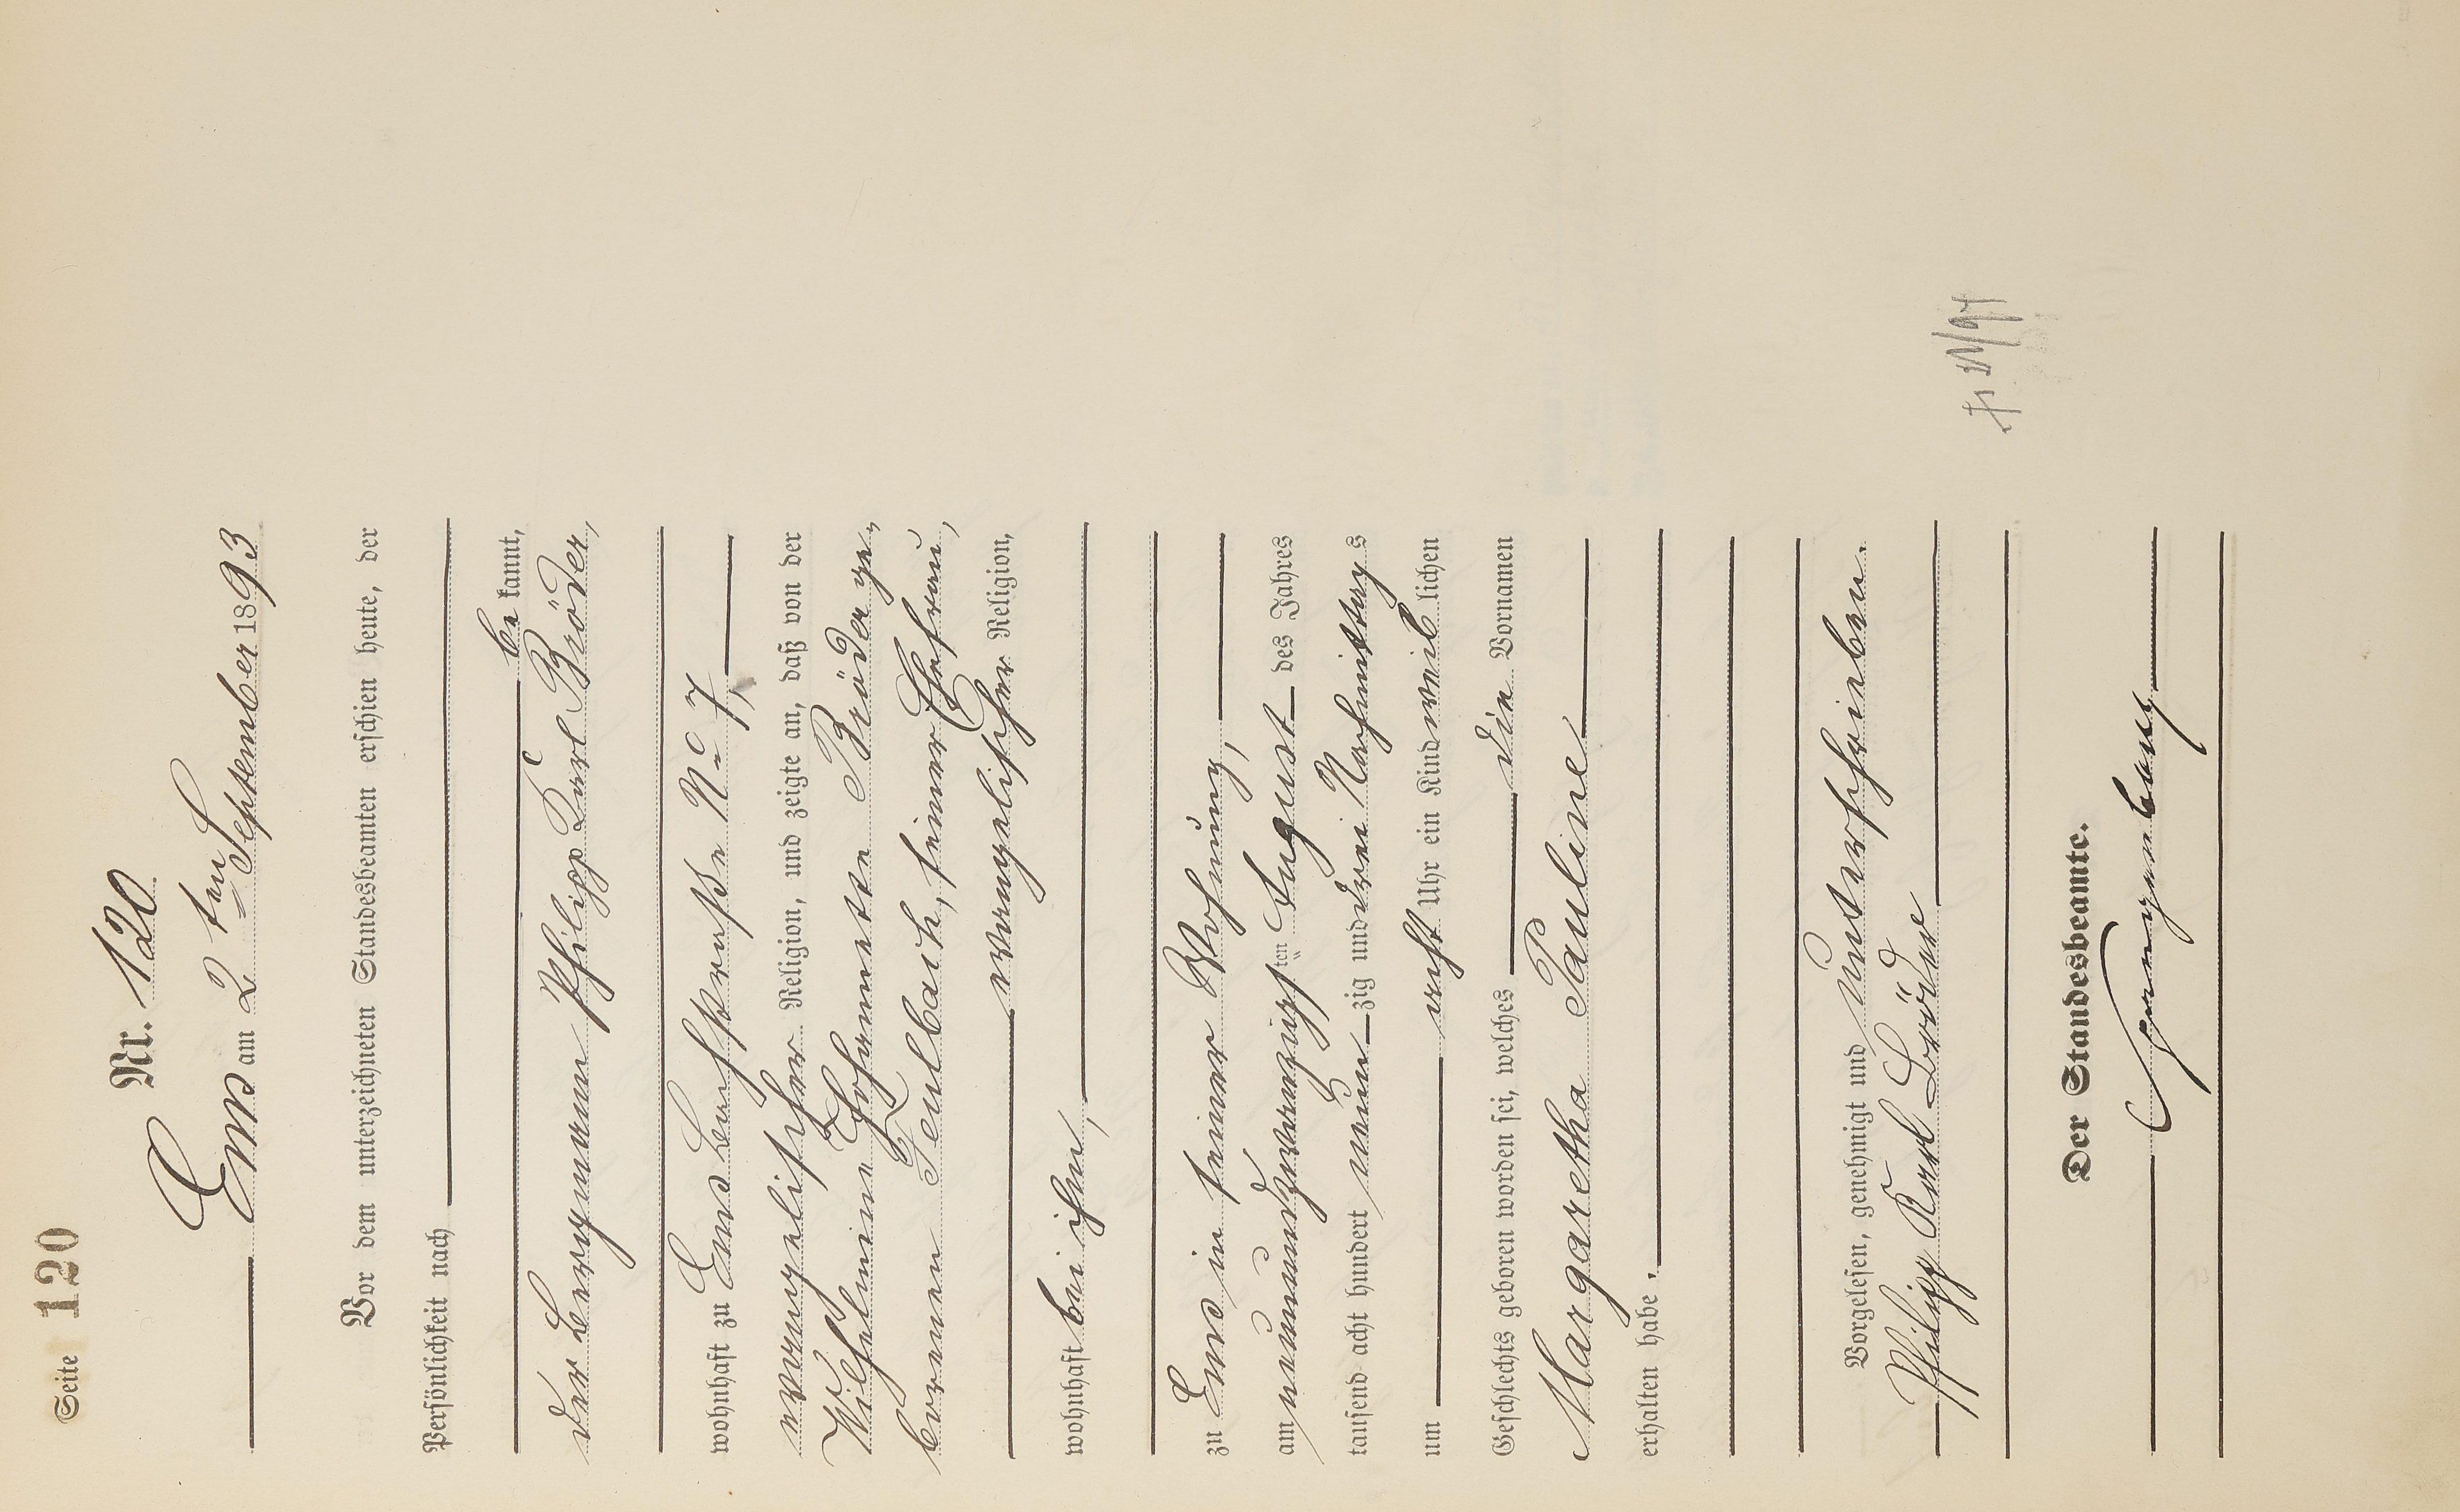 Seite 120
Nr. 120.
Ems am 2ten September 1893
Vor dem unterzeichneten Standesbeamten erschien heute, der
Persönlichkeit nach
bekannt,
der Bergmann Philipp Karl Bröder,
wohnhaft zu Ems Bachstraße No 7,
evangelischer Religion, und zeigte an, daß von der
Wilhelmine Johannette Bröder ge-
borenen Feulbach, seiner Ehefrau,
evangelischer Religion,
wohnhaft bei ihm,
zu Ems in seiner Wohnung,
am neunundzwanzigsten August des Jahres
tausend acht hundert neunzig und drei Nachmittags
um acht Uhr ein Kind weiblichen
Geschlechts geboren worden sei, welches die Vornamen
Margaretha Pauline
erhalten habe.
Vorgelesen, genehmigt und unterschrieben.
Philipp Karl Bröder
Der Standesbeamte.